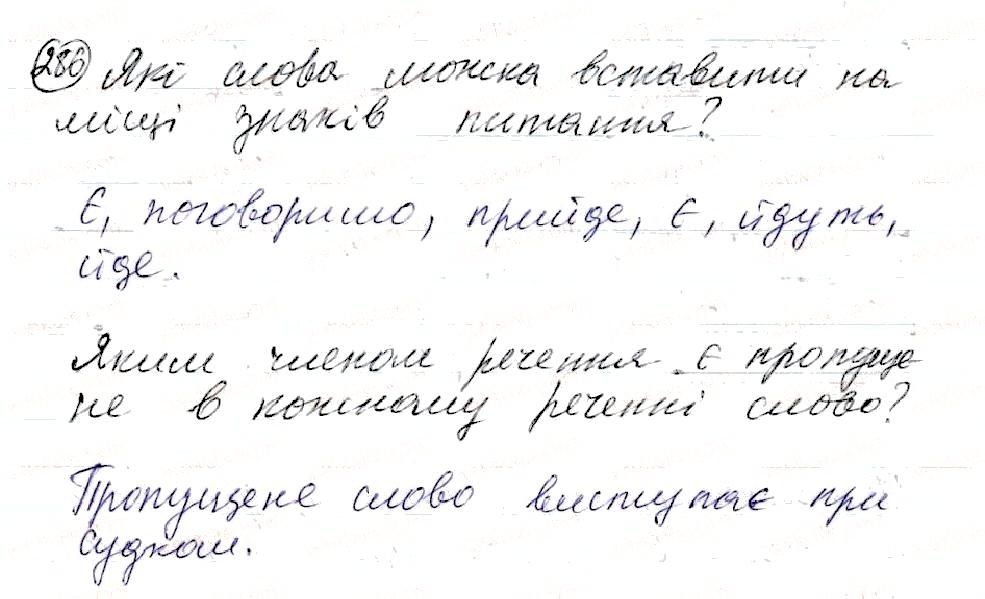 286 Які слова можна вставити на
місці знаків питання?
Є, поговоримо, прийде, є, йдуть,
йде.
Яким членом речення є пропуще
не в кожному реченні слово?
Пропущене слово виступає при
судком.